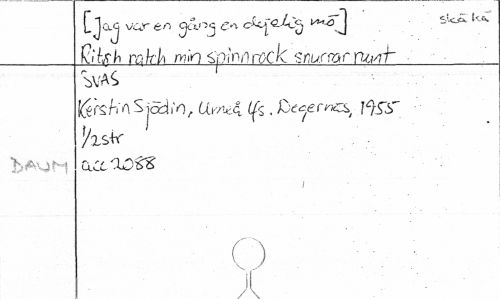 [Jag var en gång en dejelig mö] skä kä
Ritsh ratch min spinnrock snurrar runt
SVAS
Kerstin Sjödin, Umeå ls. Degernäs, 1955
1/2 str
DAUM acc 2088